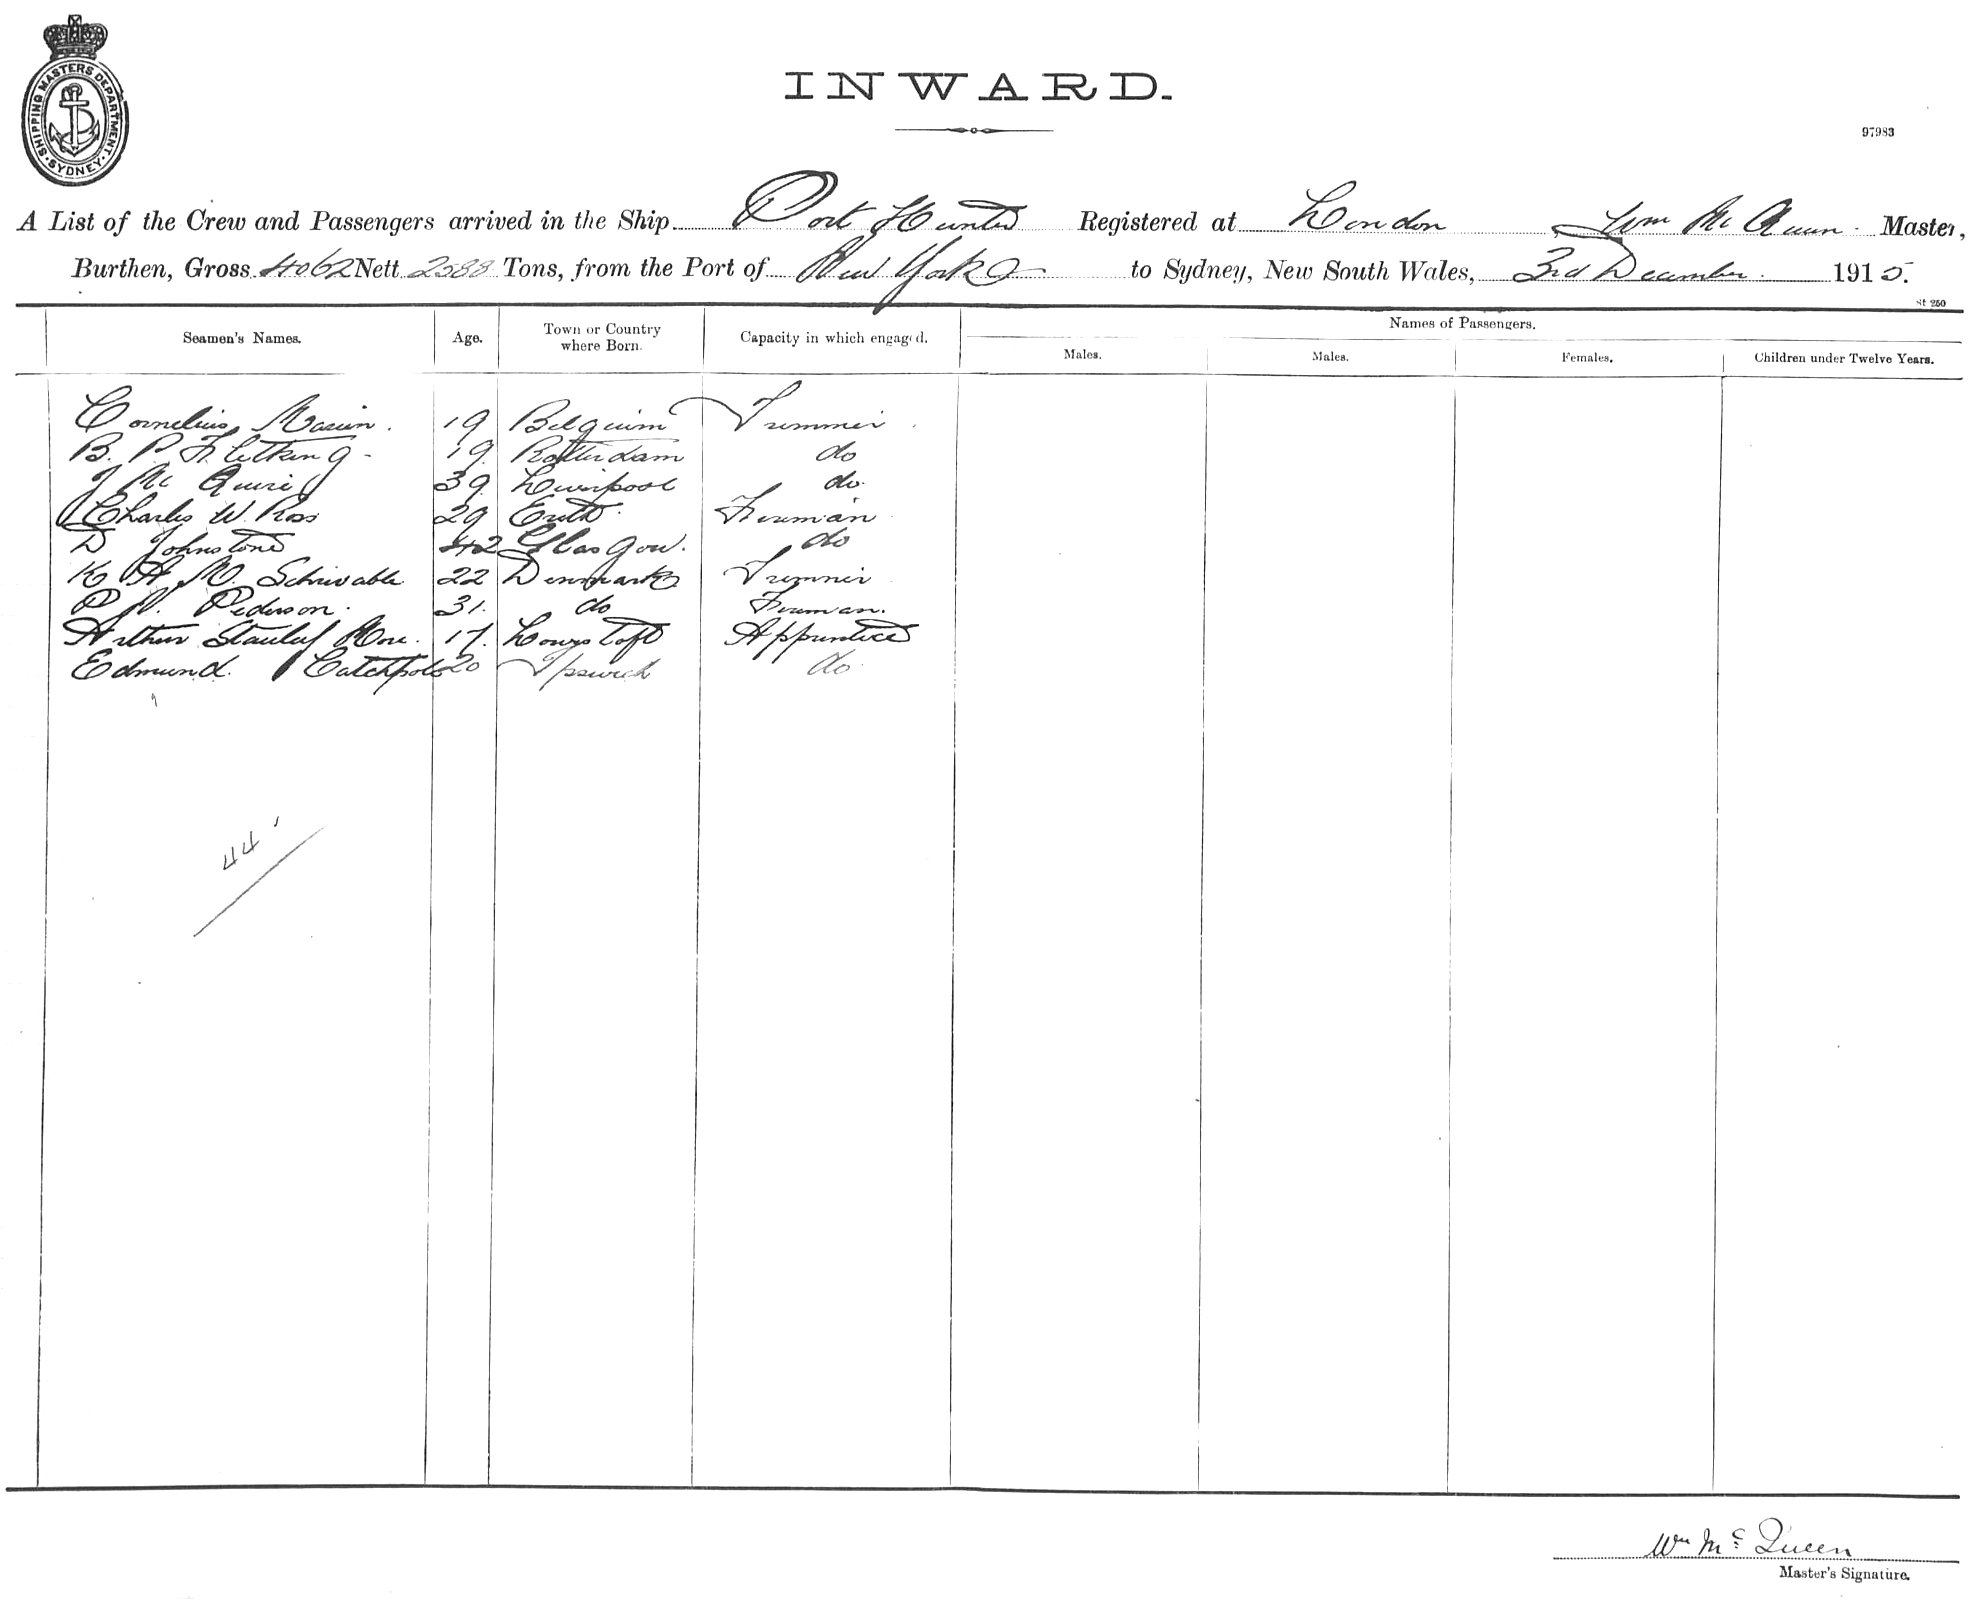 SHIPPING MASTERS DEPARTMENT. SYDNEY
INWARD.
97983
A List of the Crew and Passengers arrived in the Ship Port Hunter Registered at London Wm McQueen Master,
Burthen, Gross 4062 Nett 2588 Tons, from the Port of New York to Sydney, New South Wales, 3rd December 1915.
St 250
Seamen's Names. Age. Town or Country where Born. Capacity in which engaged. Names of Passengers.
Males. Males. Females. Children under Twelve Years.
Cornelius 19 Belgium Trimmer
B. P. 19. Rotterdam do
J Mc Quire 39 Liverpool do.
Charles W. Ross 29 Erith Fireman
D Johnstone 42 Glasgow. do
K A M. 22 Denmark Trimmer
P. Pederson. 31. do Fireman.
Arthur Stanley 17. Lowestoft Apprentice
Edmund. Catchpole 20 Ipswich do
44
Wm McQueen
Master's Signature.